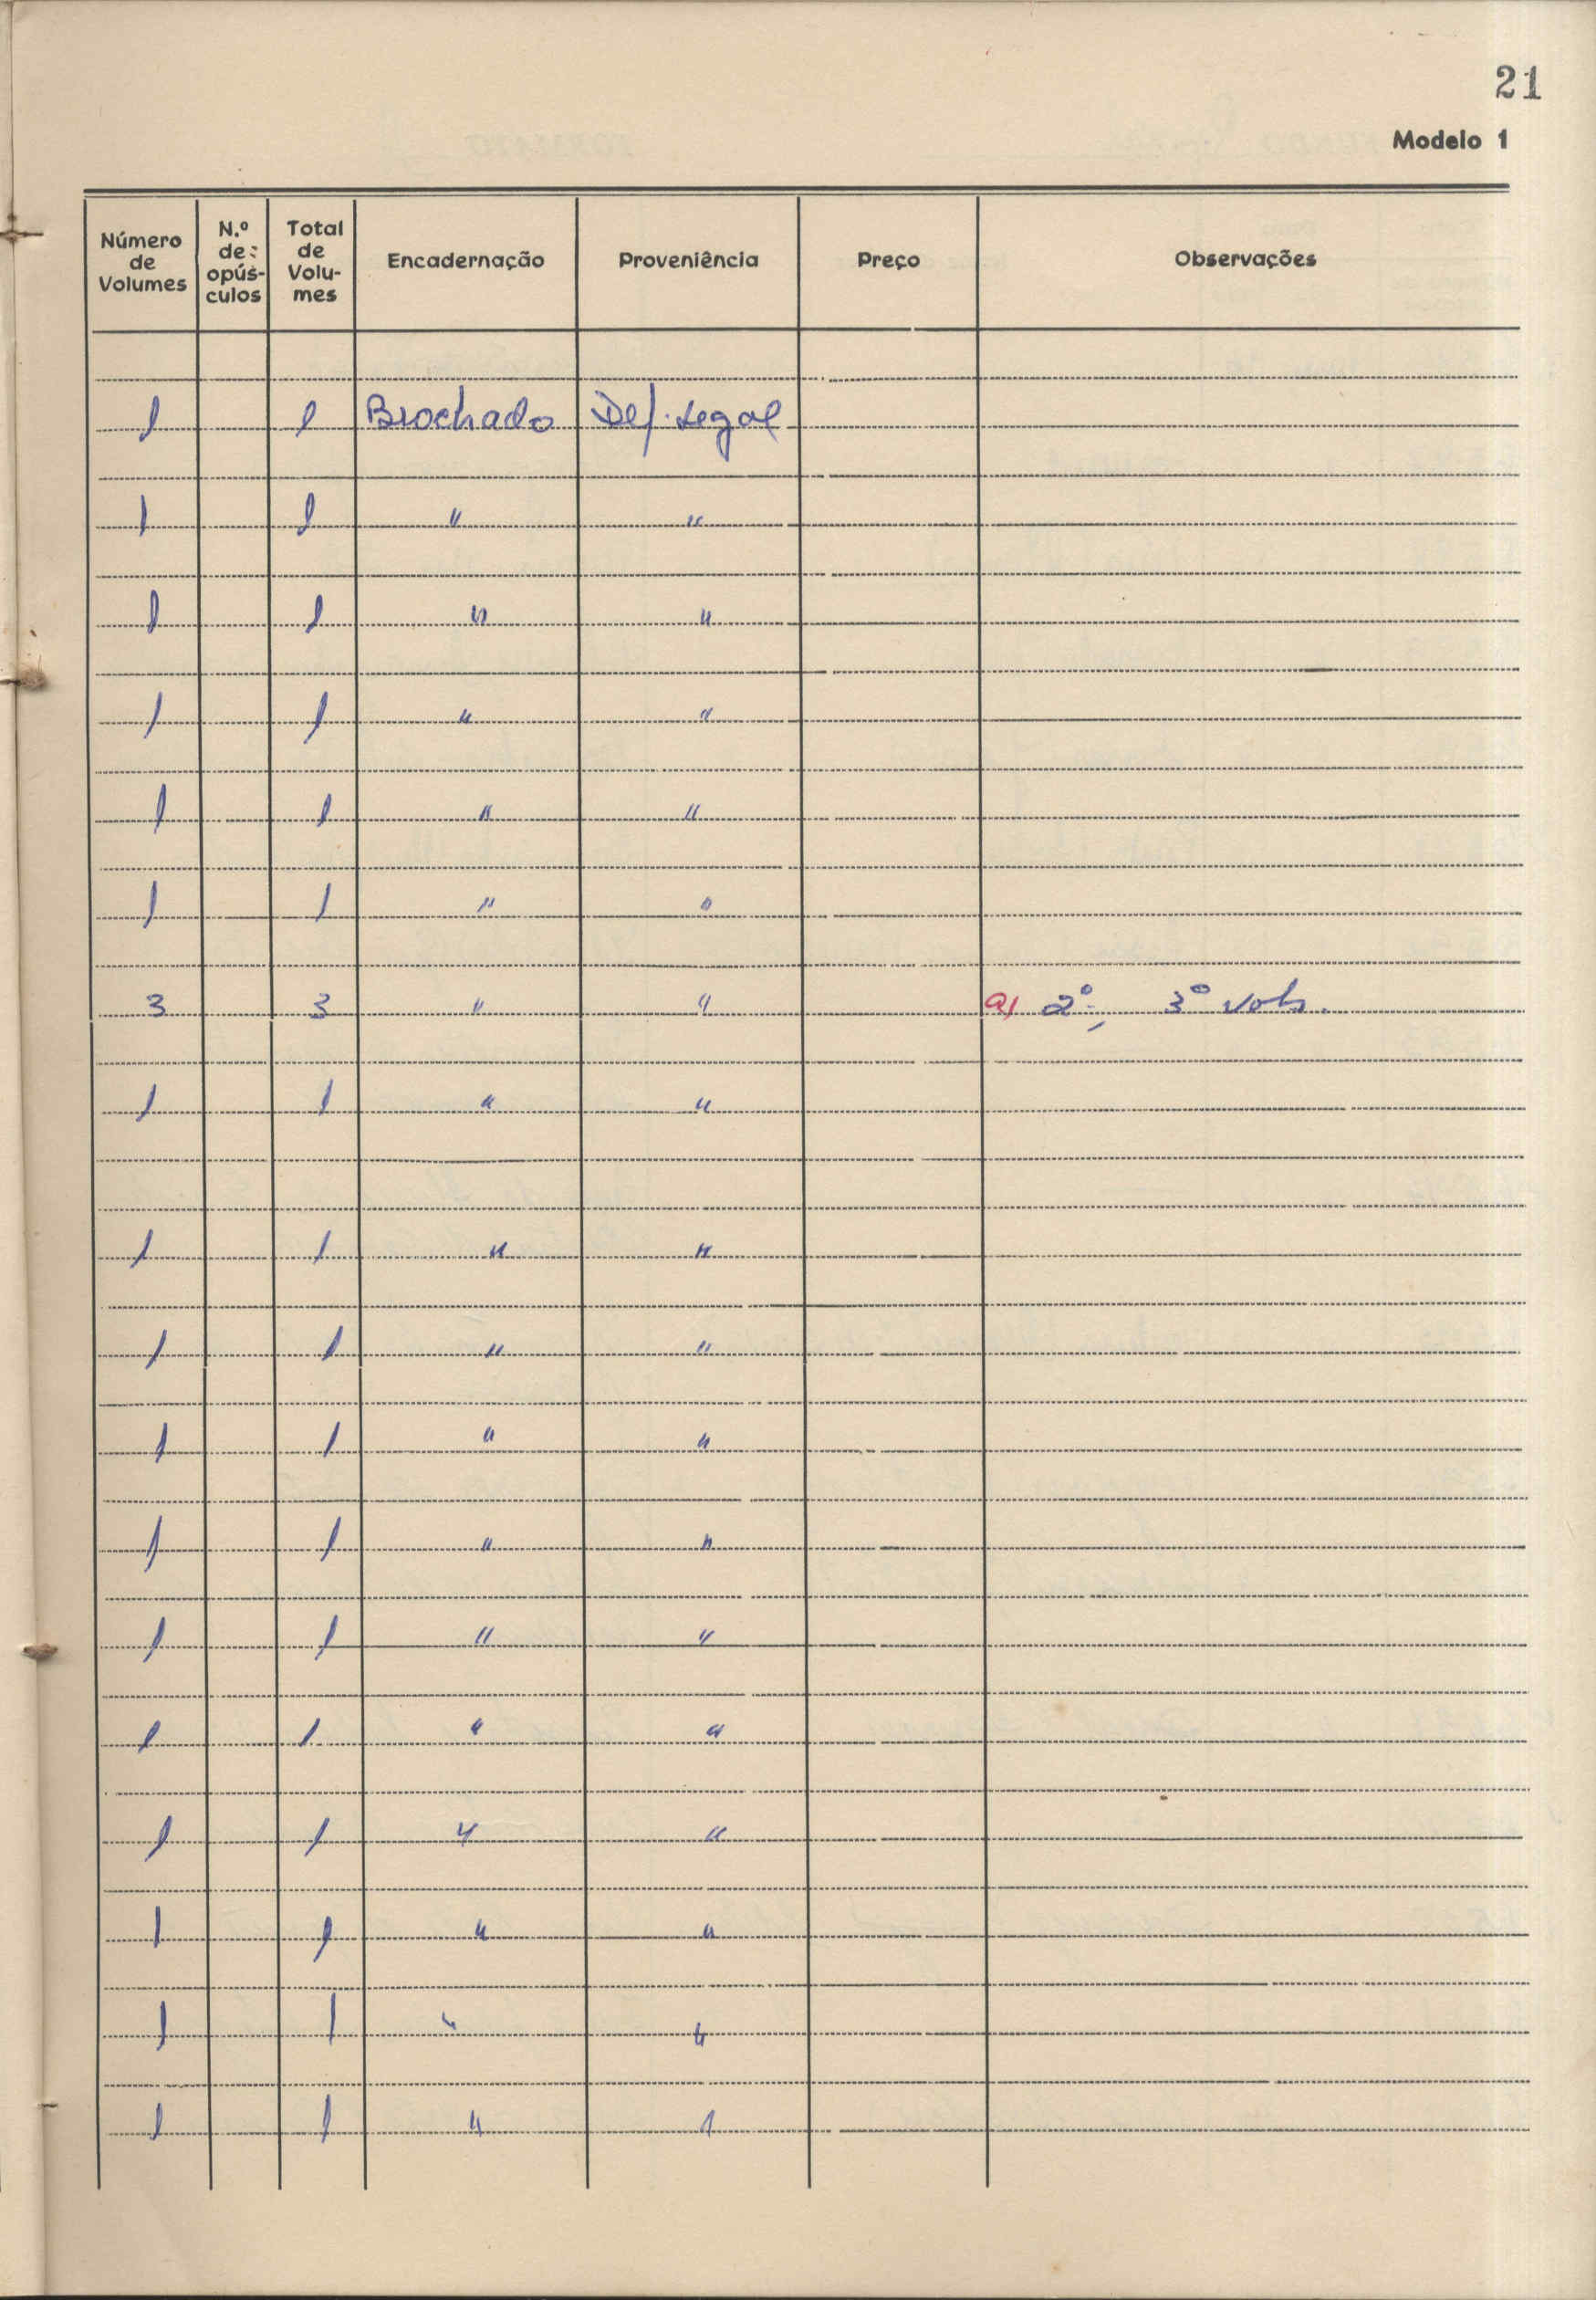 21
Modelo 1
Número de Volumes | N.º de opús-culos | Total de Volu-mes | Encadernação | Proveniência | Preço | Observações
1 | | 1 | Brochado | Dep. Legal
1 | | 1 | " | "
1 | | 1 | " | "
1 | | 1 | " | "
1 | | 1 | " | "
1 | | 1 | " | "
3 | | 3 | " | " | | a) 2º, 3º vols.
1 | | 1 | " | "
1 | | 1 | " | "
1 | | 1 | " | "
1 | | 1 | " | "
1 | | 1 | " | "
1 | | 1 | " | "
1 | | 1 | " | "
1 | | 1 | " | "
1 | | 1 | " | "
1 | | 1 | " | "
1 | | 1 | " | "